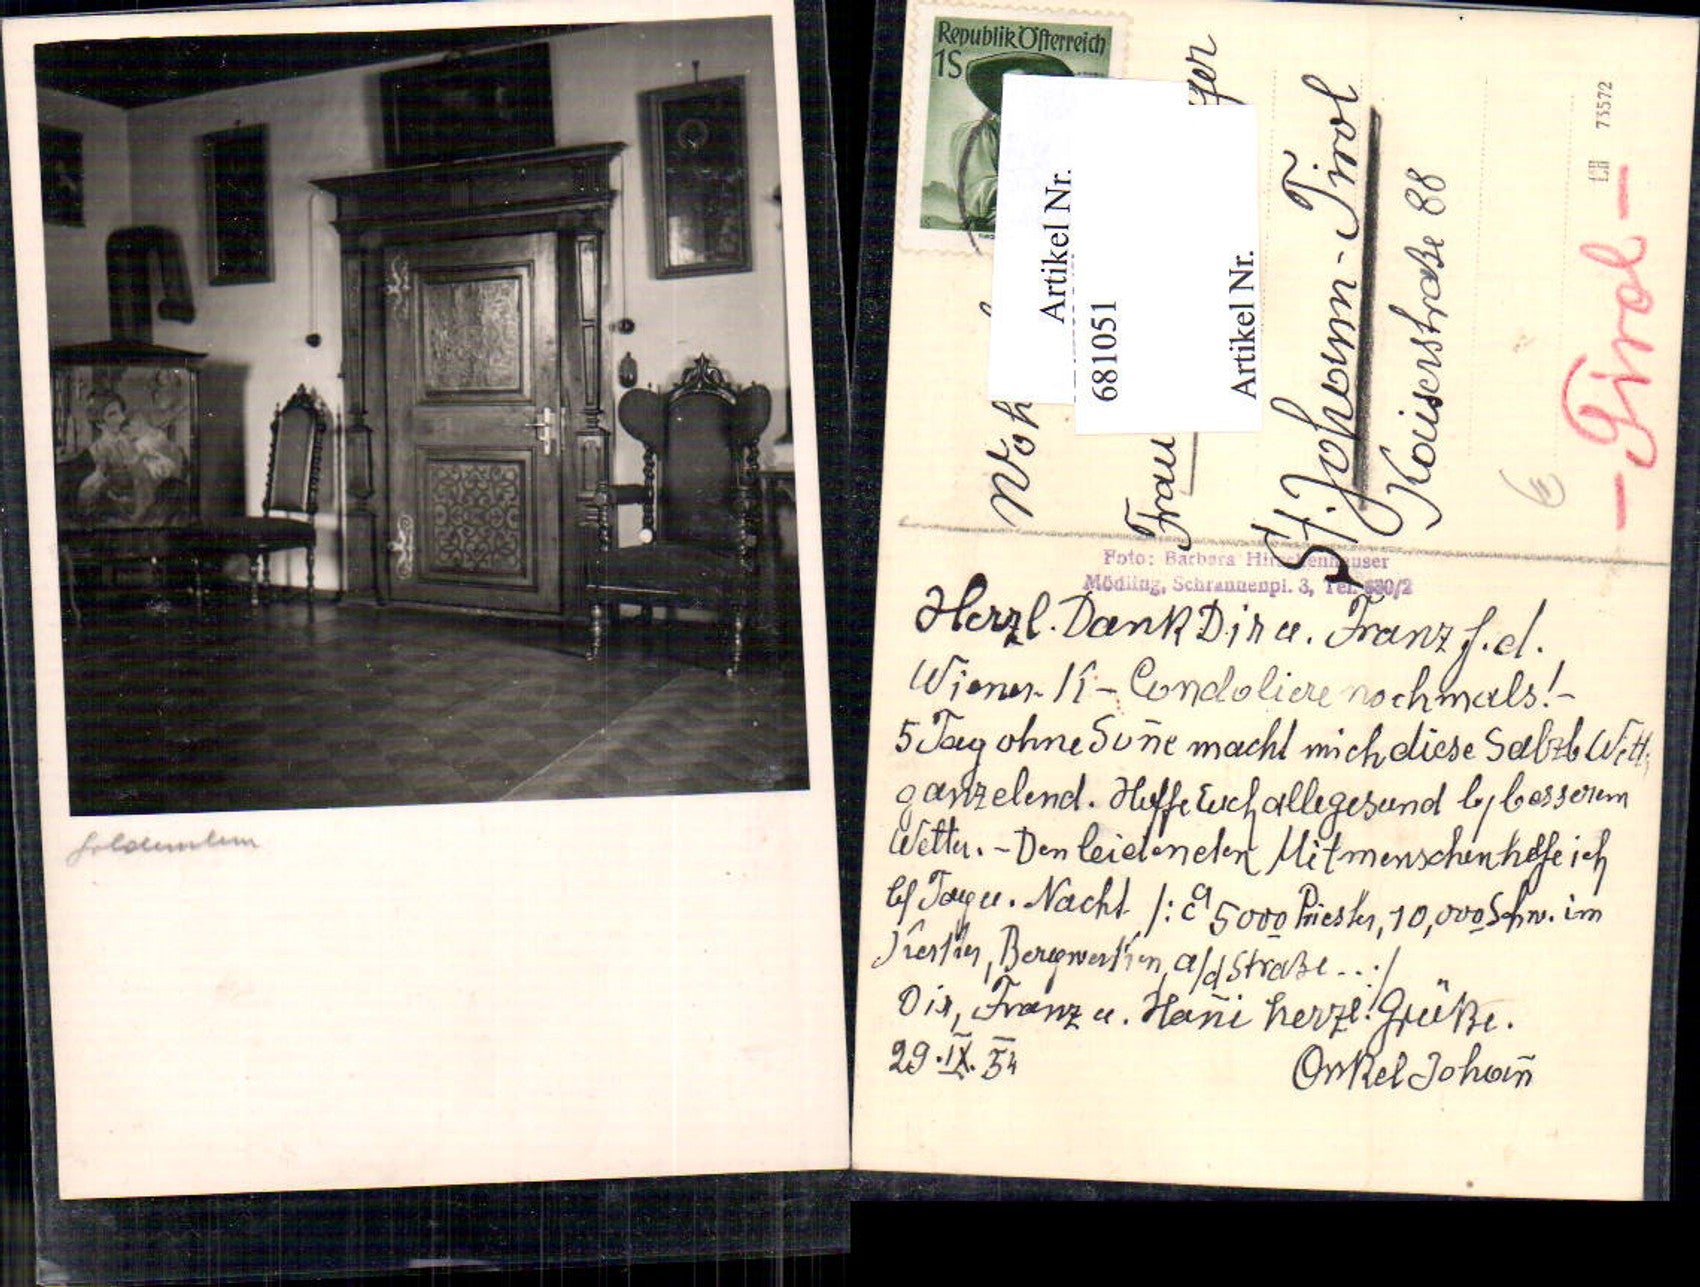 Goldenstein
Republik Österreich
1S
Artikel Nr.
681051
Artikel Nr.
Frau
St. Johann-Tirol
Kaiserstraße 88
-Tirol-
73572
Foto: Barbara Hirschenhauser
Mödling, Schrannenpl. 3, Tel. 680/2
Herzl. Dank Dir u. Franz f. d.
Wiener K - Condoliere nochmals! -
5 Tag ohne Soñe macht mich diese Salzb Wett
ganz elend. Hoffe Euch alle gesund b/ besserem
Wetter. - Den leidenden Mitmenschen helfe ich
b/ Tag u. Nacht /: à 5000 Priester, 10,000 Schw. im
Kerker, Bergwerken, a/d Straße ... :/
Dir, Franz u. Hañi herzl. Grüße.
29. IX. 54
Onkel Johañ